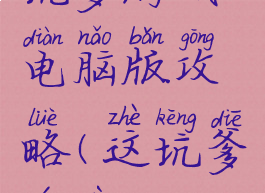 diàn nǎo bǎn gōng
电脑版攻
lüè zhè kēng diē
略(这坑爹